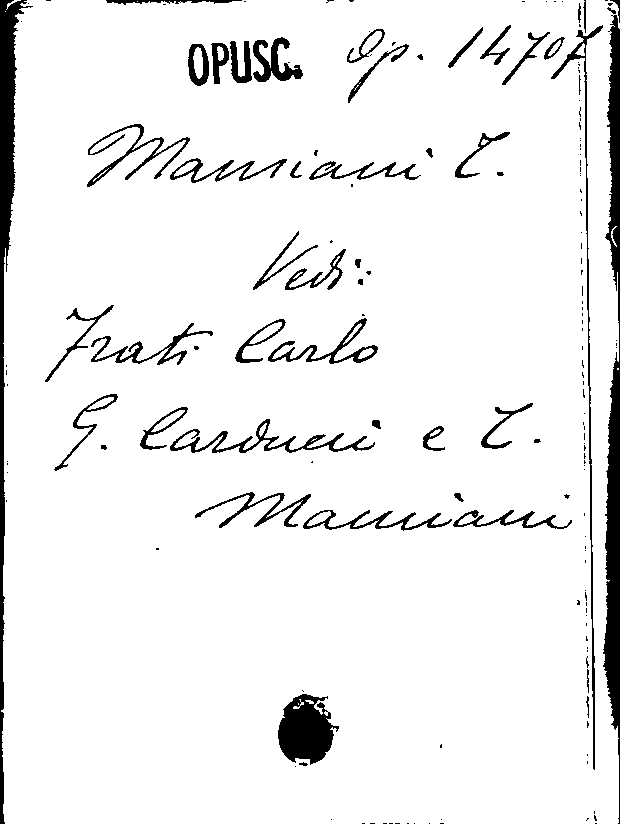 OPUSC. Op. 14707
Mamiani T.
Vedi:
Frati Carlo
G. Carducci e T.
Mamiani